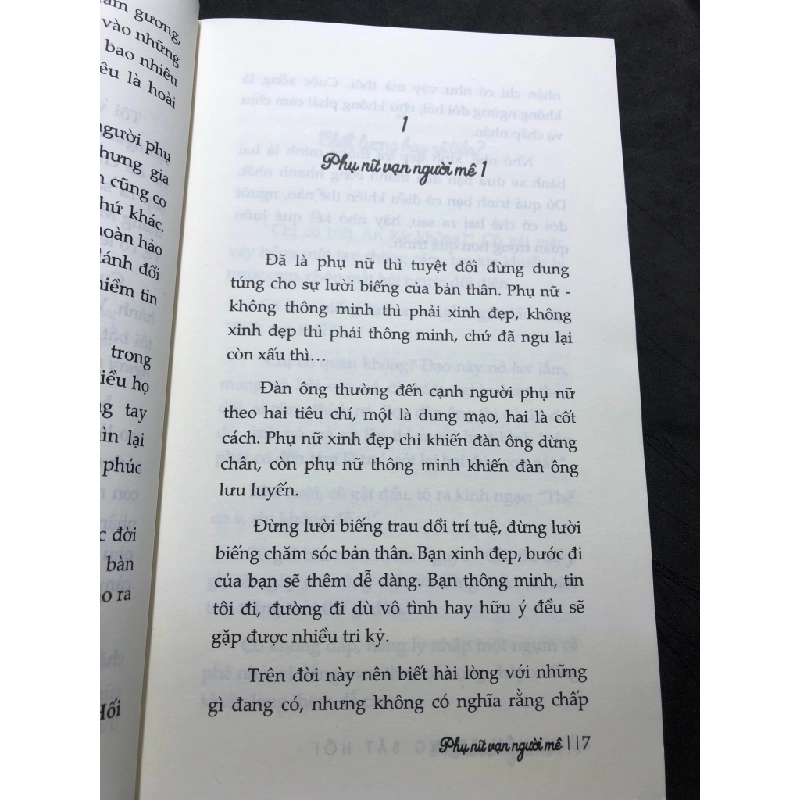 ăm gương,
vào những
bao nhiêu
êu là hoài
người phụ
nhưng gia
n cũng co
hứ khác.
hoàn hảo
đánh đổi
niềm tin
trong
hiều họ
ng tay
ìn lại
phúc
c đời
bàn
o ra
Hối
1
Phụ nữ vạn người mê 1
Đã là phụ nữ thì tuyệt đối đừng dung
túng cho sự lười biếng của bản thân. Phụ nữ -
không thông minh thì phải xinh đẹp, không
xinh đẹp thì phải thông minh, chứ đã ngu lại
còn xấu thì...
Đàn ông thường đến cạnh người phụ nữ
theo hai tiêu chí, một là dung mạo, hai là cốt
cách. Phụ nữ xinh đẹp chỉ khiến đàn ông dừng
chân, còn phụ nữ thông minh khiến đàn ông
lưu luyến.
Đừng lười biếng trau dồi trí tuệ, đừng lười
biếng chăm sóc bản thân. Bạn xinh đẹp, bước đi
của bạn sẽ thêm dễ dàng. Bạn thông minh, tin
tôi đi, đường đi dù vô tình hay hữu ý đều sẽ
gặp được nhiều tri kỷ.
Trên đời này nên biết hài lòng với những
gì đang có, nhưng không có nghĩa rằng chấp
Phụ nữ vạn người mê | 17